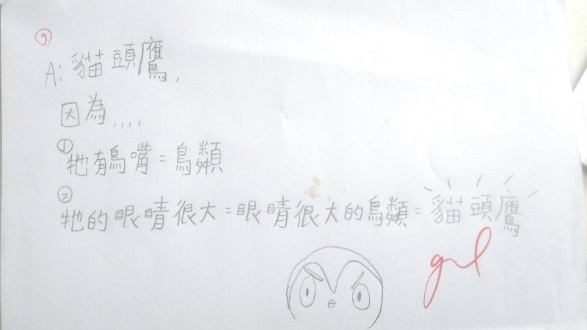 9
A: 貓頭鷹,
因為....
① 牠有鳥嘴=鳥類
② 牠的眼睛很大=眼睛很大的鳥類=貓頭鷹